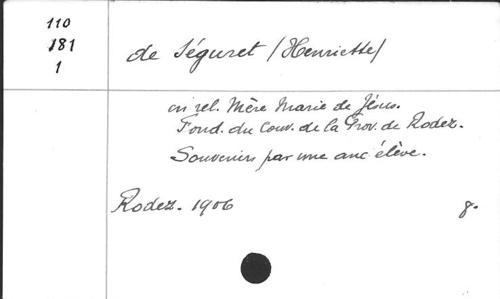 110
181
1
de Séguret (Henriette)
en rel. Mère Marie de Jésus.
Fond. du Couv. de la Prov. de Rodez.
Souvenirs par une anc. élève.
Rodez. 1906
8.